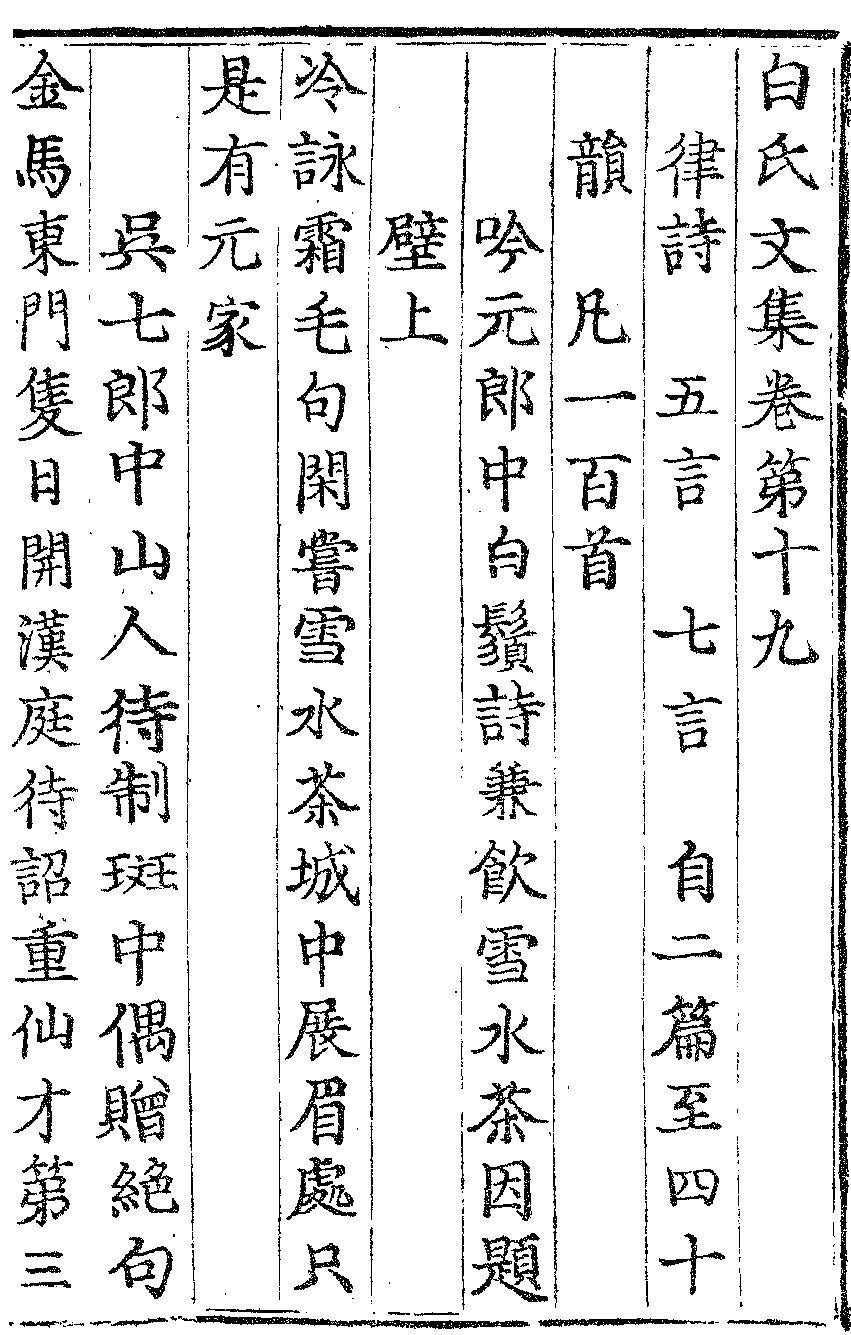 白氏文集卷第十九
律詩　五言　七言　自二篇至四十
韻　凡一百首
吟元郎中白鬚詩兼飲雪水茶因題
壁上
冷詠霜毛句閑嘗雪水茶城中展眉處只
是有元家
吳七郎中山人待制班中偶贈絕句
金馬東門隻日開漢庭待詔重仙才第三